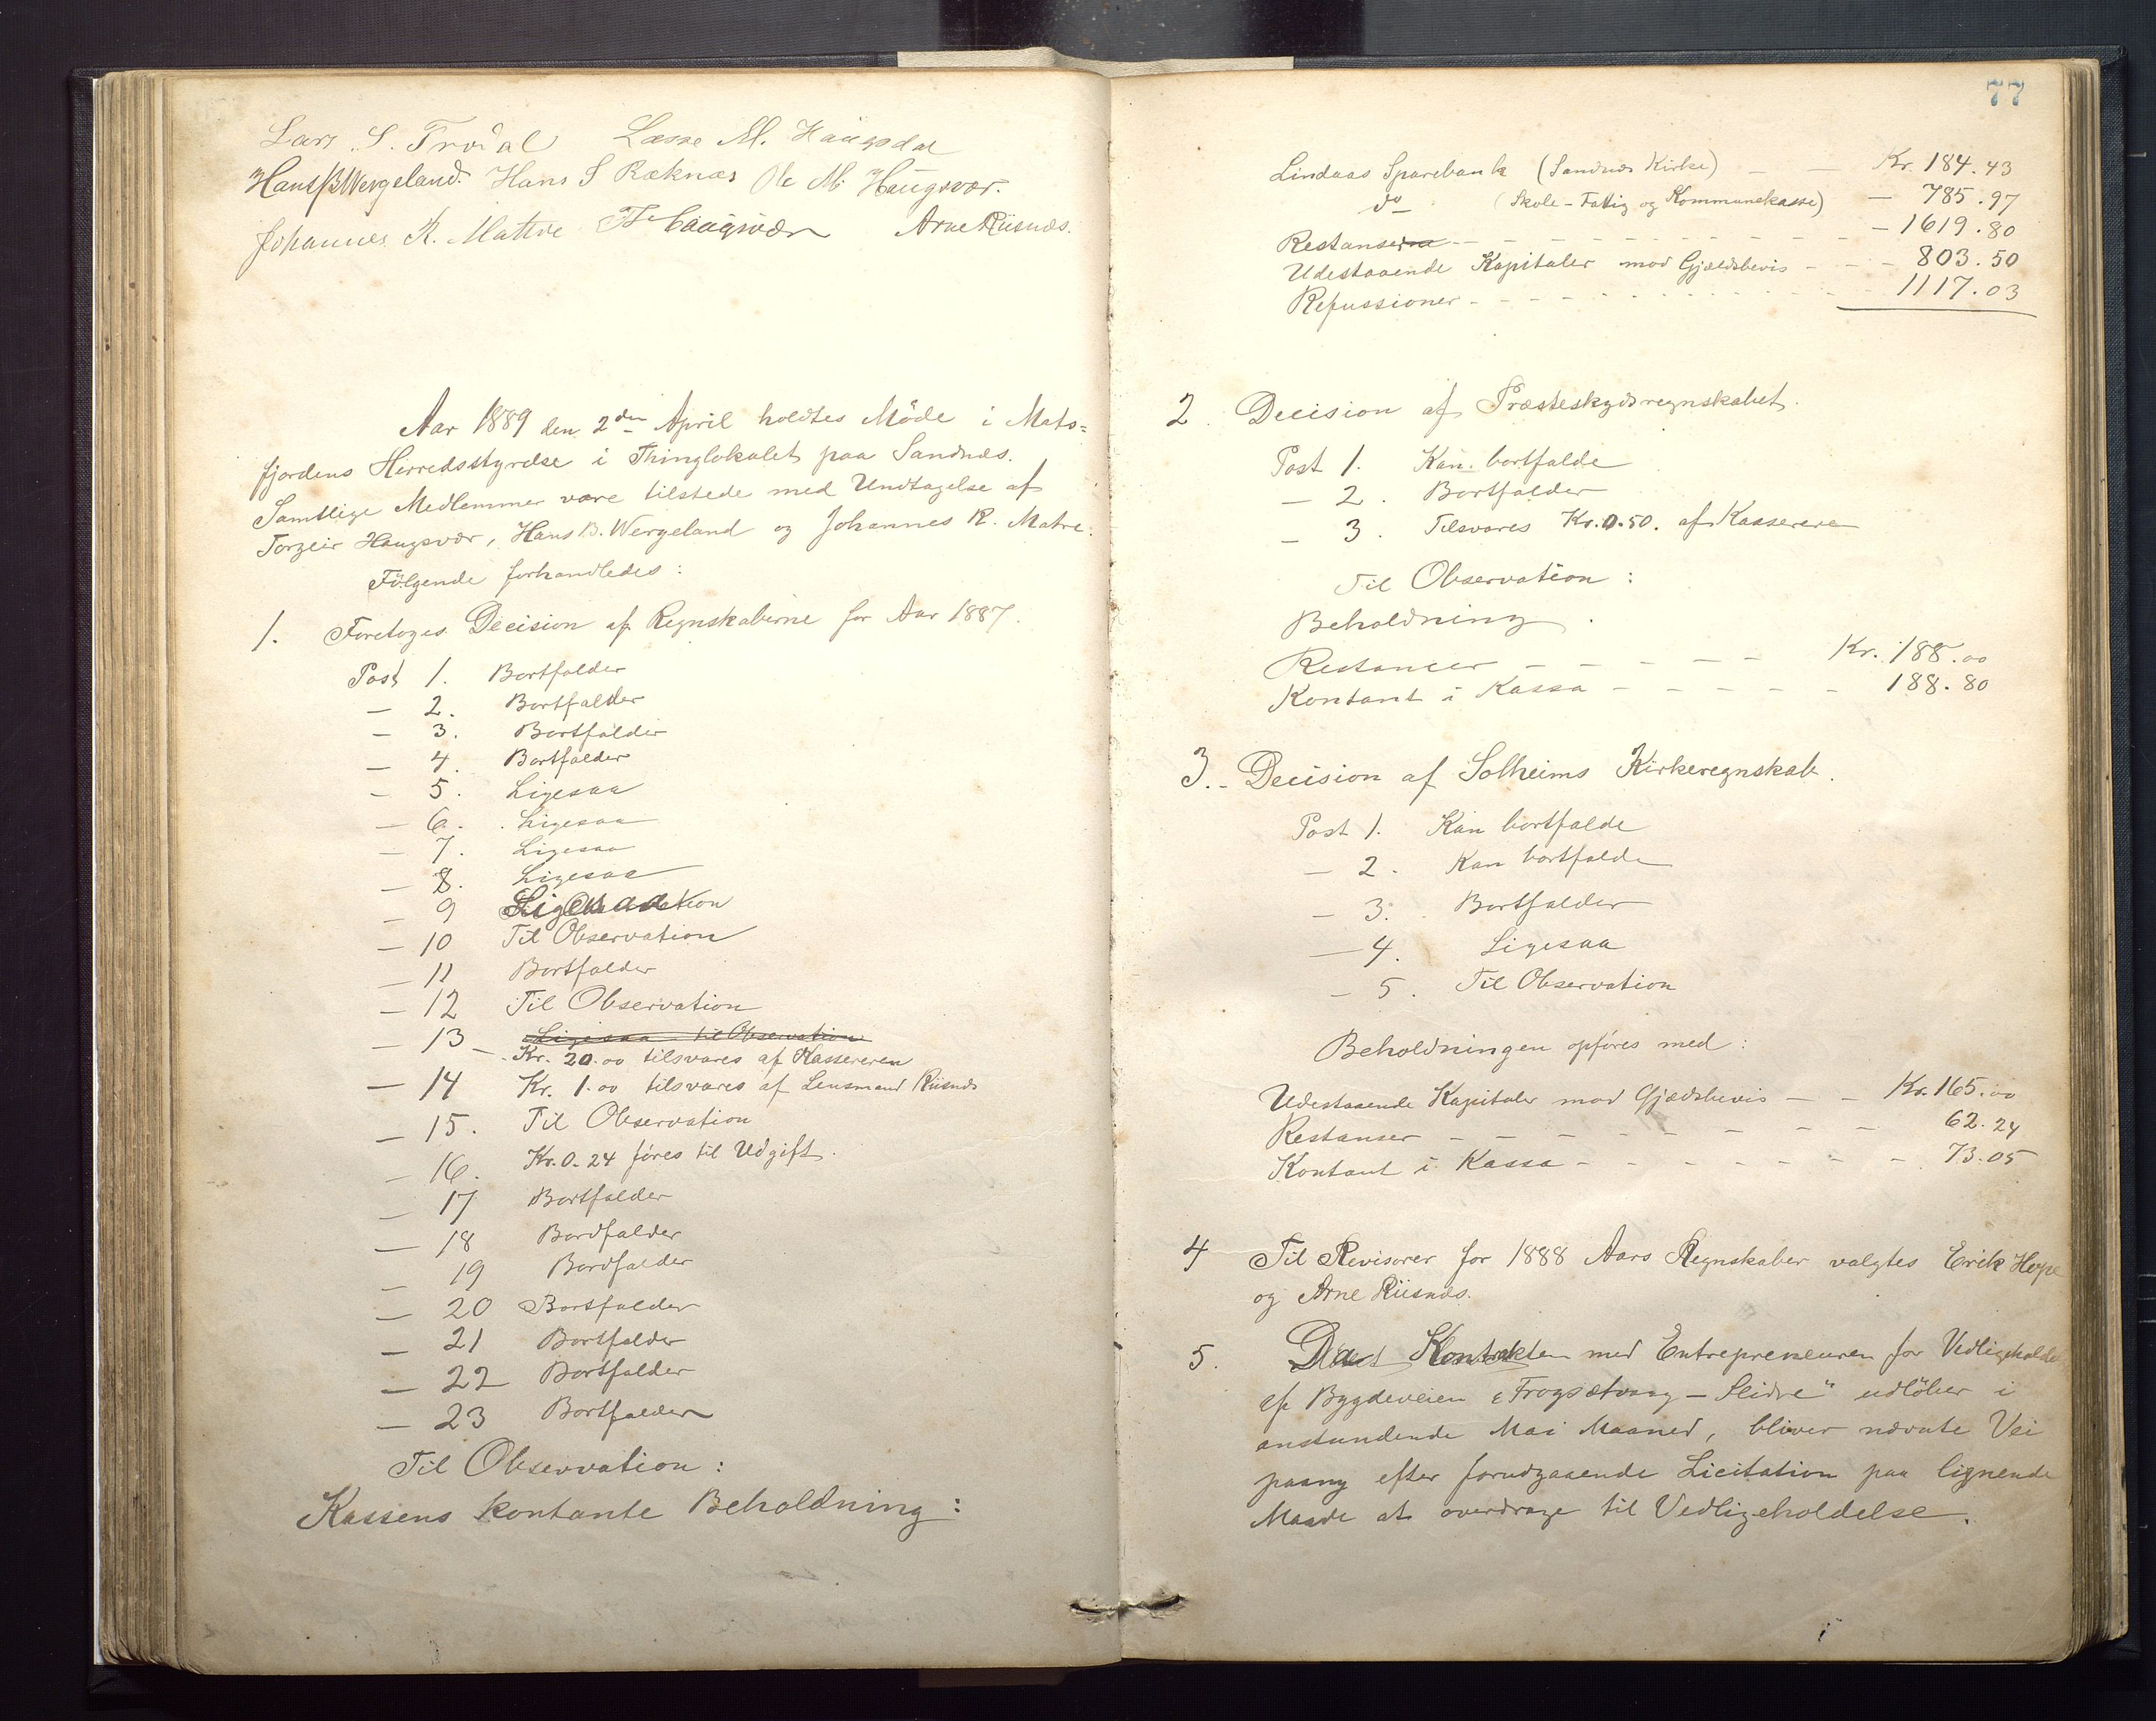 Lars S. Trodal Lasse M. Haugsdal
Hans B Wergeland. Hans S Røknæs Ole M. Haugsvær.
Johannes K. Matre T Haugsvær Arne Riisnæs.
Aar 1889 den 2den April holdtes Møde i Mats=
fjordens Herredsstyrelse i Thinglokalet paa Sandnæs.
Samtlige Medlemmer vare tilstede med Undtagelse af
Torgeir Haugsvær, Hans B. Wergeland og Johannes K. Matre.
Følgende forhandledes:
1. Foretoges Decision af Regnskaberne for Aar 1887.
Post 1. Bortfalder
— 2. Bortfalder
— 3. Bortfalder
— 4. Bortfalder
— 5. Ligesaa
— 6. Ligesaa
— 7. Ligesaa
— 8. Ligesaa
— 9 Ligesaa
— 10 Til Observation
— 11 Bortfalder
— 12 Til Observation
— 13 — Ligesaa til Observation
Kr. 20.00 tilsvares af Kassereren
— 14 Kr. 1.00 tilsvares af Lensmand Riisnæs
— 15. Til Observation
— 16. Kr. 0.24 føres til Udgift.
— 17 Bortfalder
— 18 Bordfalder
— 19 Bordfalder
— 20 Bortfalder
— 21 Bortfalder
— 22 Bortfalder
— 23 Bortfalder
Til Observation:
Kassens kontante Beholdning:
77
Lindaas Sparebank (Sandnæs Kirke) — — Kr. 184.43
do (Skole-Fattig og Kommunekasse) — 785.97
Restanser — 1619.80
Udestaaende Kapitaler mod Gjældsbevis — — 803.50
Refussioner — 1117.03
2. Decision af Præsteskydsregnskabet.
Post 1. Kan bortfalde
— 2. Bortfalder
— 3. Tilsvares Kr. 0.50. af Kassereren
Til Observation:
Beholdning.
Restancer — — — — — Kr. 188.00
Kontant i Kassa — — — — — 188.80
3. Decision af Solheims Kirkeregnskab.
Post 1. Kan bortfalde
— 2. Kan bortfalde
— 3. Bortfalder
— 4. Ligesaa
— 5. Til Observation
Beholdningen opføres med:
Udestaaende Kapitaler mod Gjældsbevis — — Kr. 165.00
Restanser — — — — — — — — 62.24
Kontant i Kassa — — — — — — — 73.05
4 Til Revisorer for 1888 Aars Regnskaber valgtes Erik Hope
og Arne Riisnæs.
5. Da Kontrakten med Entrepreneuren for Vedligeholdel
af Bygdeveien „Frogsetvaag — Sleire" udløber i
anstundende Mai Maaned, bliver nævnte Vei
paany efter forudgaaende Licitation paa lignende
Maade at overdrage til Vedligeholdelse.